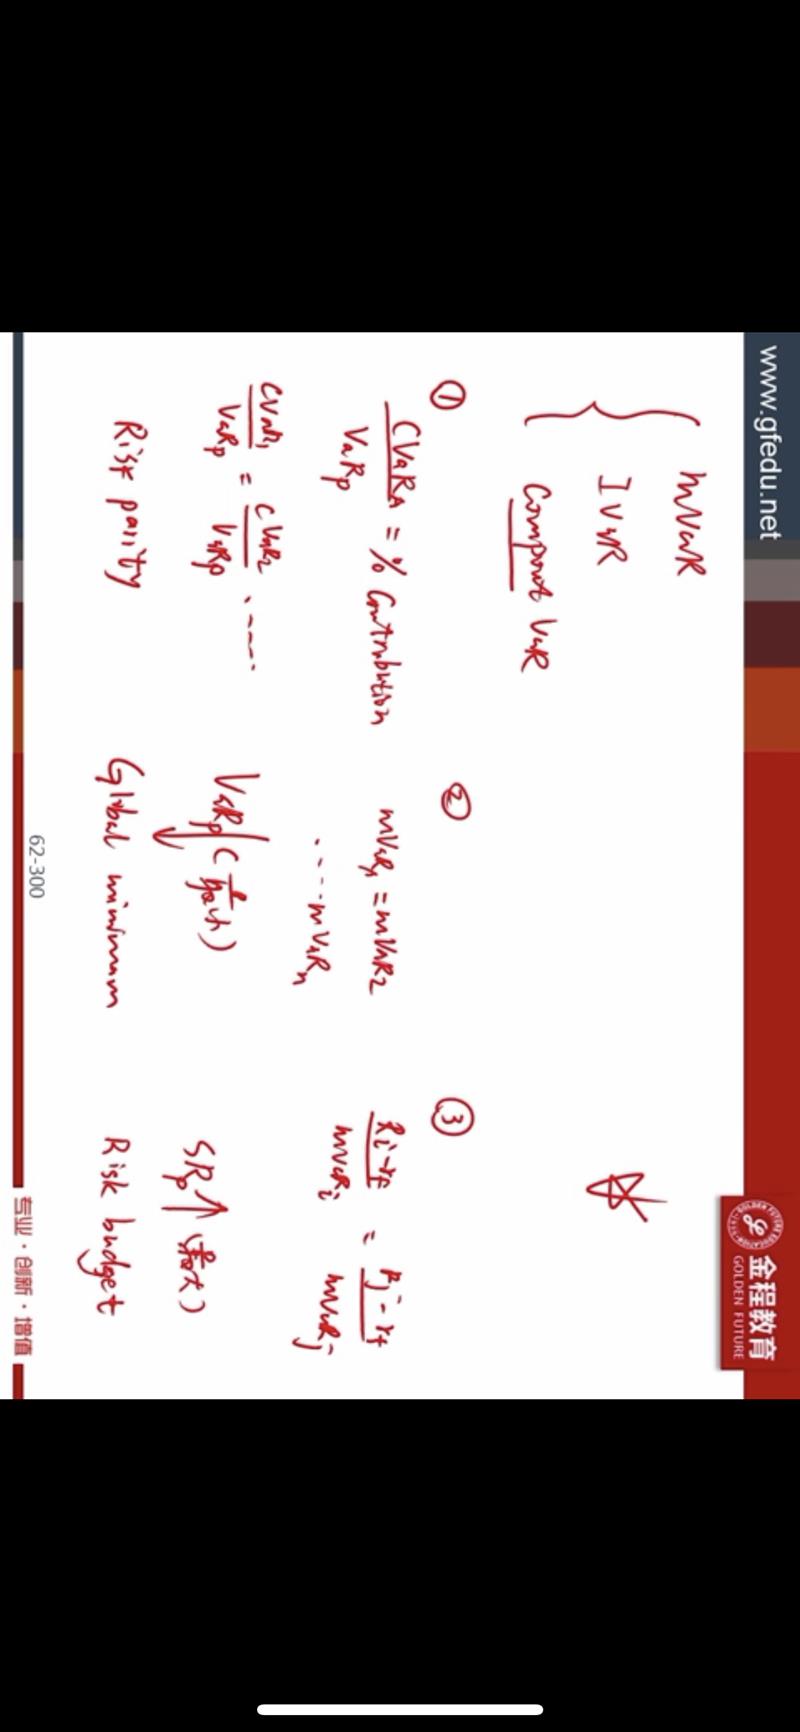 www.gfedu.net
金程教育
GOLDEN FUTURE
mVaR
IVaR
Component VaR
①
CVaR_A / VaR_p = % Contribution
CVaR_1 / VaR_p = CVaR_2 / VaR_p .....
Risk parity
②
mVaR_1 = mVaR_2
.... mVaR_n
VaR_p ↓
Global minimum
③
Ri-rf / mVaR_i = Rj-rf / mVaR_j
SR_p ↑ (最大)
Risk budget
62-300
专业·创新·增值